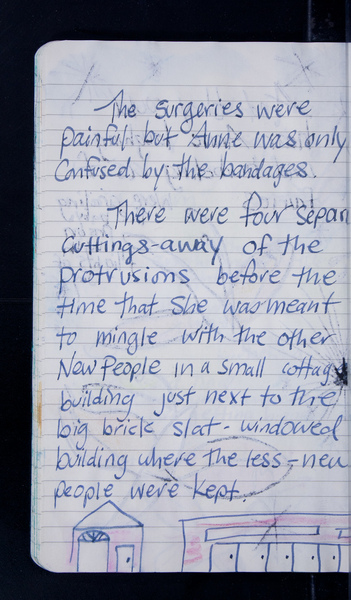 The surgeries were
painful but Annie was only
confused by the bandages.
There were four separ
cuttings-away of the
protrusions before the
time that she was meant
to mingle with the other
New People in a small cottage
building just next to the
big brick slat-windowed
building where the less-new
people were kept.